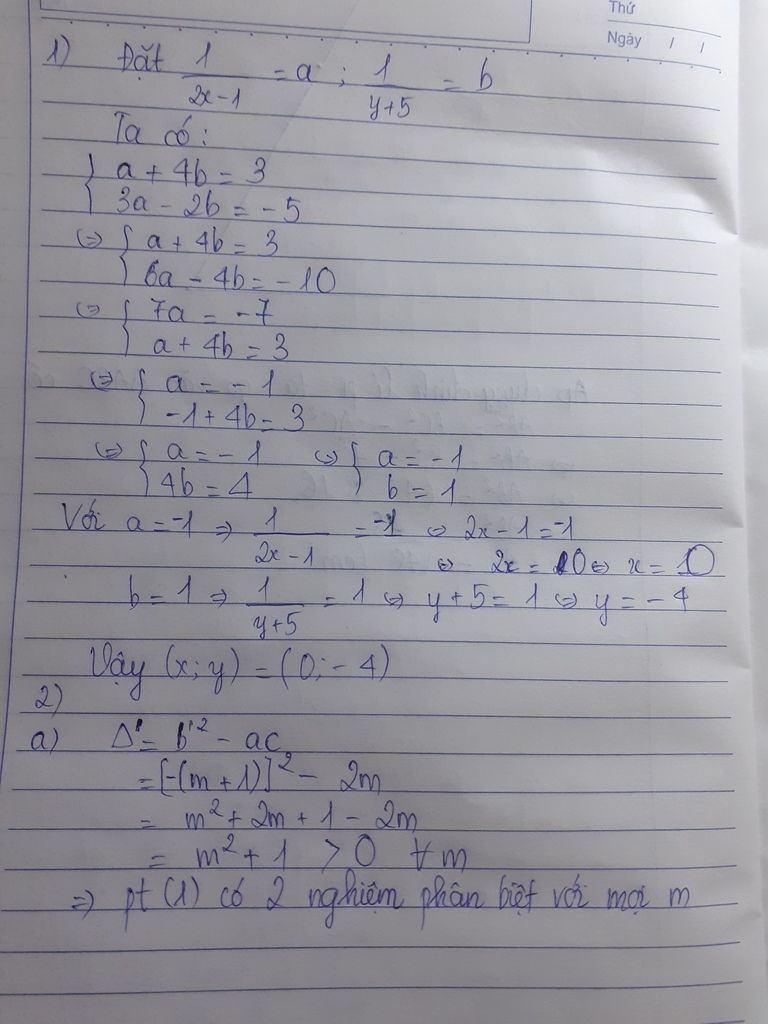 Thứ
Ngày / /
1) Đặt 1/(2x-1) = a ; 1/(y+5) = b
Ta có:
{ a + 4b = 3
3a - 2b = -5
⇔ { a + 4b = 3
6a - 4b = -10
⇔ { 7a = -7
a + 4b = 3
⇔ { a = -1
-1 + 4b = 3
⇔ { a = -1 ⇔ { a = -1
4b = 4 b = 1
Với a = -1 ⇒ 1/(2x-1) = -1 ⇔ 2x - 1 = -1
⇔ 2x = 0 ⇔ x = 0
b = 1 ⇒ 1/(y+5) = 1 ⇔ y + 5 = 1 ⇔ y = -4
Vậy (x; y) = (0; -4)
2)
a) Δ' = b'² - ac
= [-(m + 1)]² - 2m
= m² + 2m + 1 - 2m
= m² + 1 > 0 ∀ m
⇒ pt (1) có 2 nghiệm phân biệt với mọi m